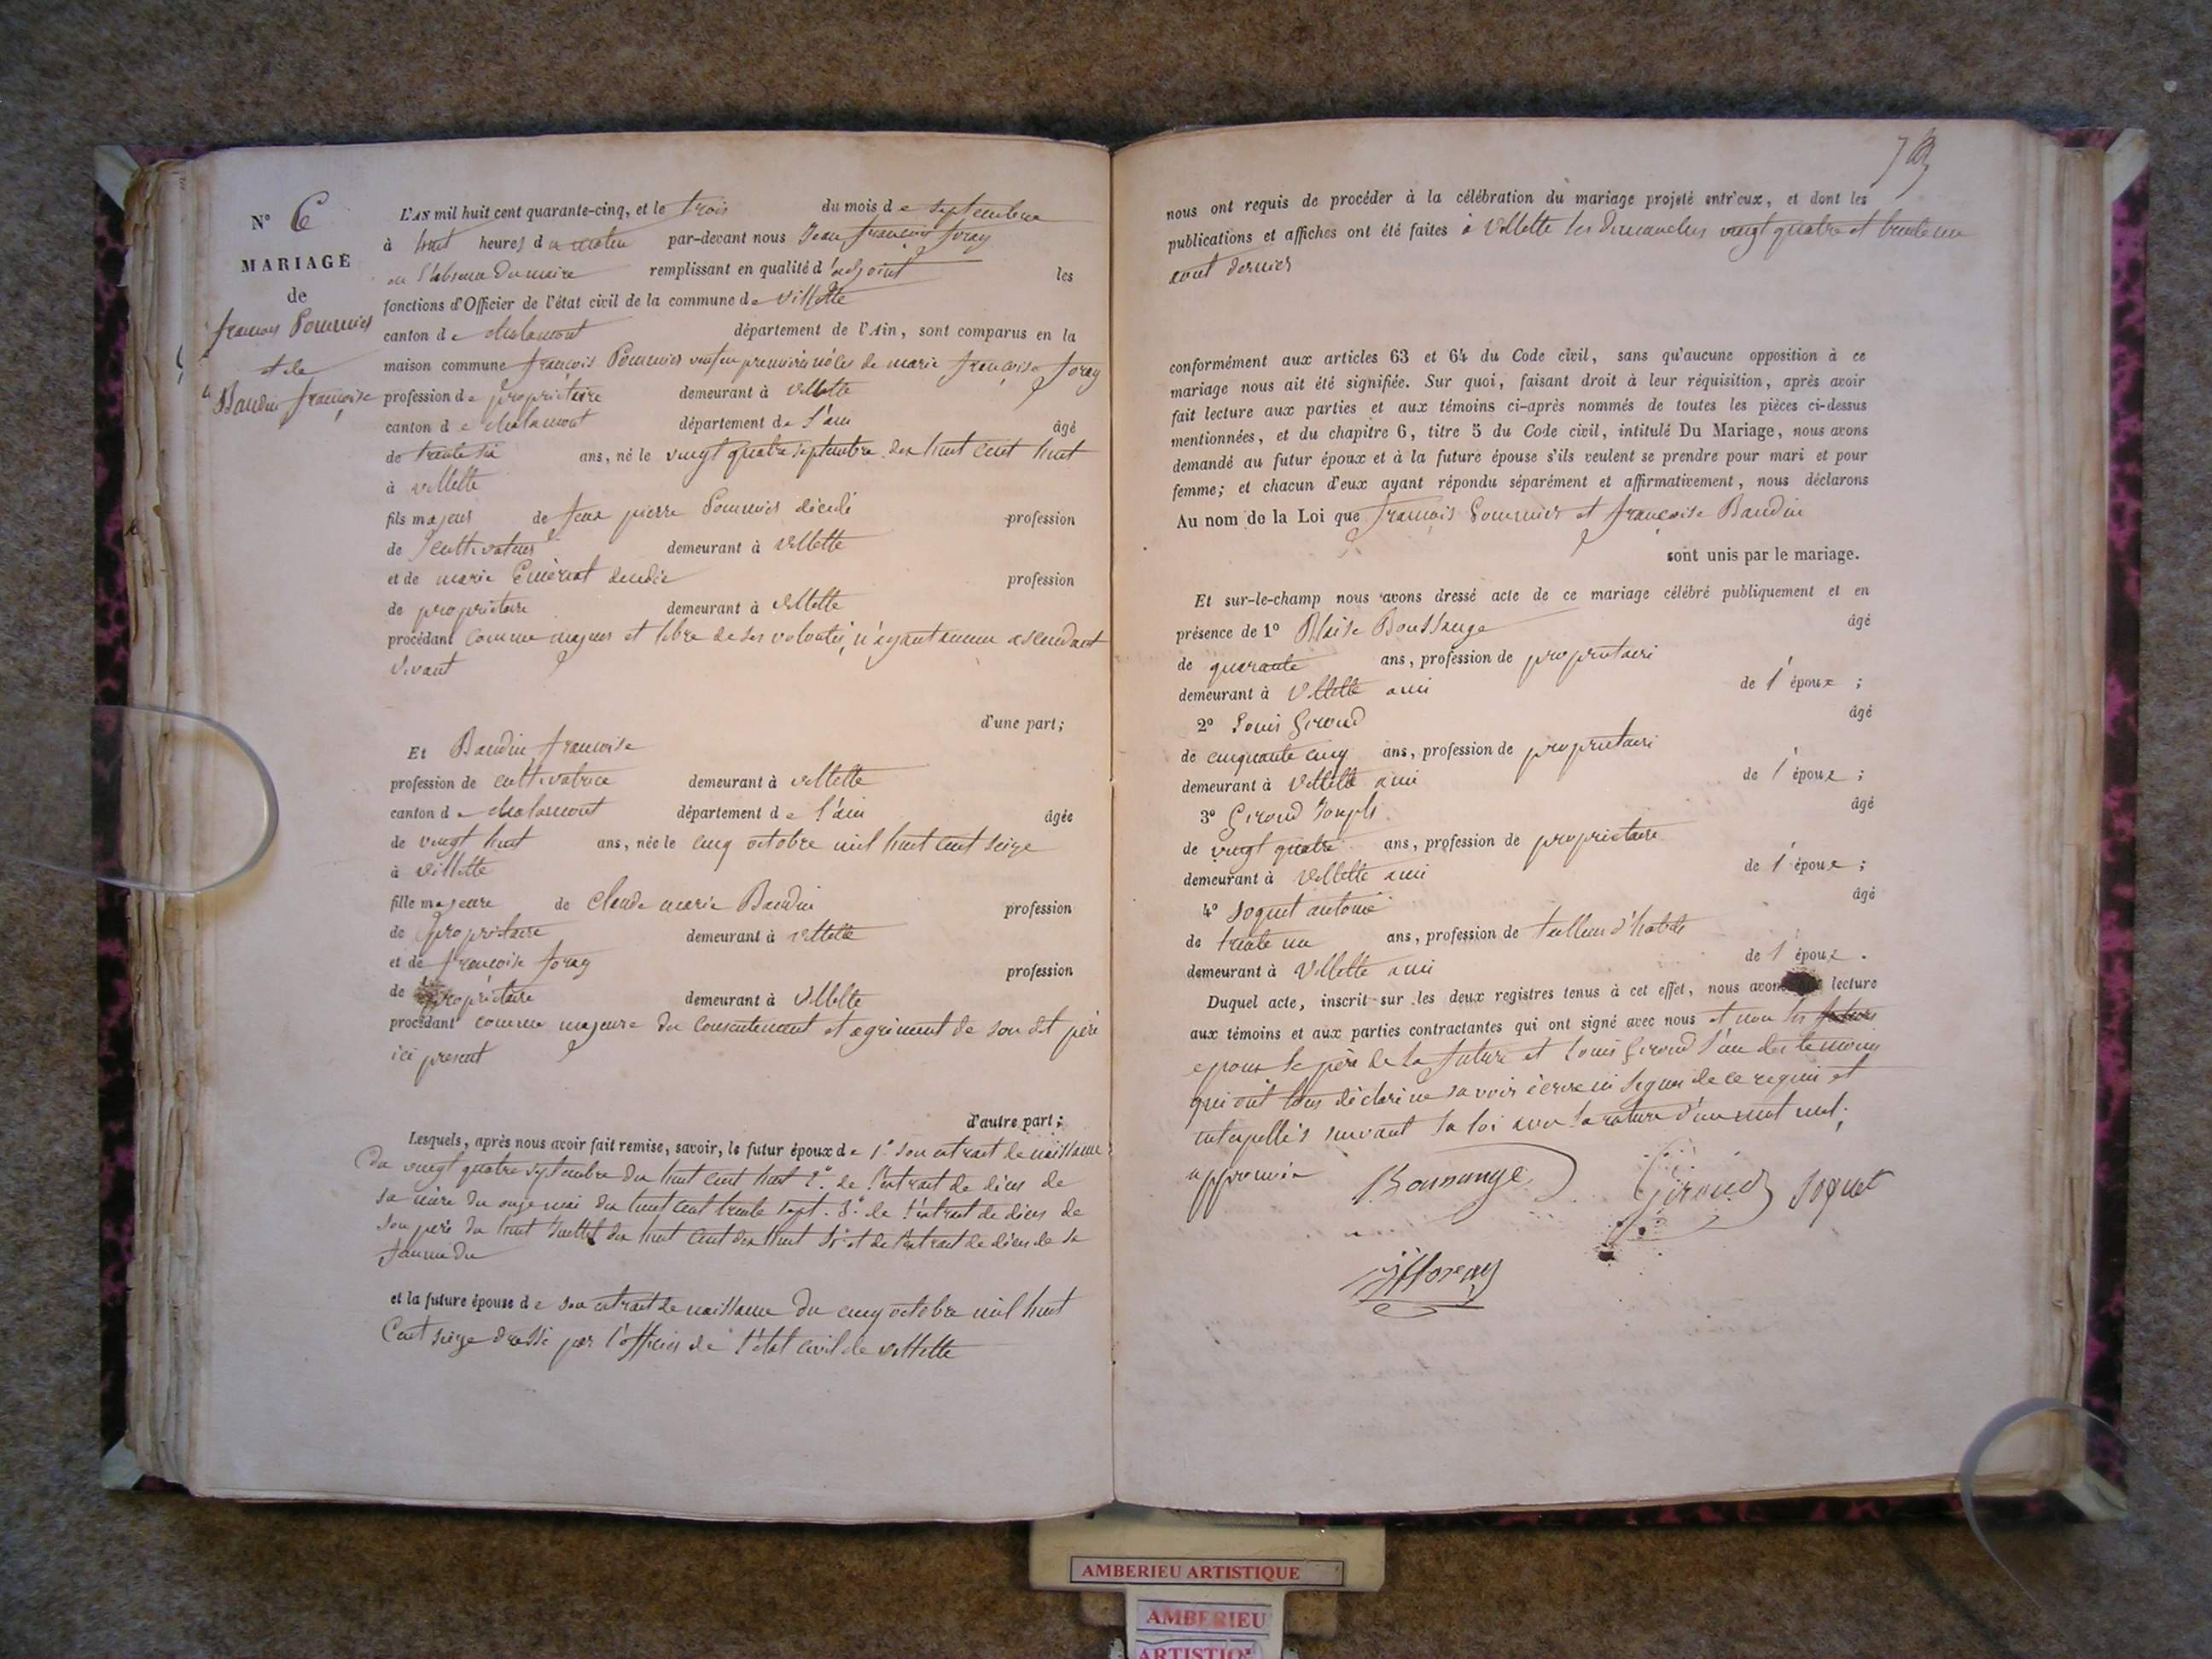 N° 6
MARIAGE
de
françois Pommier
et de
Baudin françoise
L'AN mil huit cent quarante-cinq, et le trois du mois de septembre
à huit heures du matin par-devant nous Jean françois foray
en l'absence du maire remplissant en qualité d'adjoint les
fonctions d'Officier de l'état civil de la commune de Villette
canton de chalamont département de l'Ain, sont comparus en la
maison commune françois Pommier veuf en premières nôces de marie françoise foray
profession de propriétaire demeurant à Villette
canton de chalamont département de l'ain âgé
de trente six ans, né le vingt quatre septembre dix huit cent huit
à villette
fils majeur de feux pierre Pommier décédé profession
de cultivateur demeurant à Villette
et de marie décédée profession
de propriétaire demeurant à Villette
procédant comme majeur et libre de ses volontés, n'ayant aucun ascendant
vivant
d'une part;
Et Baudin francoise
profession de cultivatrice demeurant à villette
canton de chalamont département de l'ain âgée
de vingt huit ans, née le cinq octobre mil huit cent seize
à villette
fille majeure de claude marie Baudin profession
de propriétaire demeurant à villette
et de françoise foray profession
de propriétaire demeurant à Villette
procédant comme majeure du consentement et agrément de son dit père
ici present
d'autre part;
Lesquels, après nous avoir fait remise, savoir, le futur époux de 1° son extrait de naissance
du vingt quatre septembre dix huit cent huit 2° de l'extrait de décès de
sa mère du onze mai dix huit cent trente sept. 3° de l'extrait de décès de
son père du huit Juillet dix huit cent dix huit et de l'extrait de décès de sa
femme du
et la future épouse de son extrait de naissance du cinq octobre mil huit
Cent seize dressé par l'officier de l'état civil de villette
73
nous ont requis de procéder à la célébration du mariage projeté entr'eux, et dont les
publications et affiches ont été faites à Villette les dimanches vingt quatre et trente un
aout dernier
conformément aux articles 63 et 64 du Code civil, sans qu'aucune opposition à ce
mariage nous ait été signifiée. Sur quoi, faisant droit à leur réquisition, après avoir
fait lecture aux parties et aux témoins ci-après nommés de toutes les pièces ci-dessus
mentionnées, et du chapitre 6, titre 5 du Code civil, intitulé Du Mariage, nous avons
demandé au futur époux et à la future épouse s'ils veulent se prendre pour mari et pour
femme; et chacun d'eux ayant répondu séparément et affirmativement, nous déclarons
Au nom de la Loi que françois Pommier et françoise Baudin
sont unis par le mariage.
Et sur-le-champ nous avons dressé acte de ce mariage célébré publiquement et en
présence de 1° Blaise Boussange âgé
de quarante ans, profession de propriétaire
demeurant à Villette ami de l'époux ;
2° Louis Giroud âgé
de cinquante cinq ans, profession de propriétaire
demeurant à Villette ami de l'époux ;
3° Giroud Joseph âgé
de vingt quatre ans, profession de propriétaire
demeurant à Villette ami de l'époux ;
4° Soquet antoine âgé
de trente un ans, profession de tailleur d'habits
demeurant à Villette ami de l'époux .
Duquel acte, inscrit sur les deux registres tenus à cet effet, nous avons lecture
aux témoins et aux parties contractantes qui ont signé avec nous et non les
epoux le père de la future et Louis Giroud l'un des temoins
qui ont tous déclaré ne savoir écrire ni signer de ce requis et
interpellés suivant la loi avec la rature d'un mot nul,
approuvée Boussange Giroud Soquet
jfforay
AMBERIEU ARTISTIQUE
AMBERIEU
ARTISTIQ